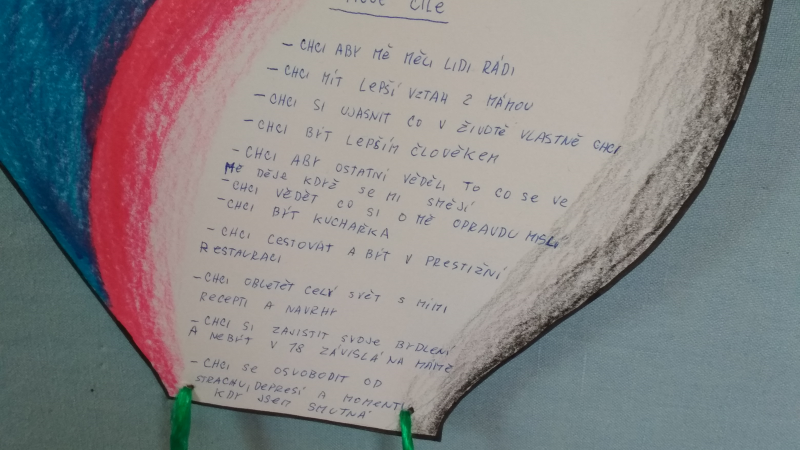 CÍLE
- CHCI ABY MĚ MĚLI LIDI RÁDI
- CHCI MÍT LEPŠÍ VZTAH Z MÁMOU
- CHCI SI UJASNIT CO V ŽIVOTĚ VLASTNĚ CHCI
- CHCI BÝT LEPŠÍM ČLOVĚKEM
- CHCI ABY OSTATNÍ VĚDĚLI TO CO SE VE
MĚ DĚJE KDYŽ SE MI SMĚJÍ
- CHCI VĚDĚT CO SI O MĚ OPRAVDU MISLÍ
- CHCI BÝT KUCHAŘKA
- CHCI CESTOVAT A BÝT V PRESTIŽNÍ
RESTAURACI
- CHCI OBLETĚT CELÝ SVĚT S MÍMI
RECEPTI A NAVRHY
- CHCI SI ZAJISTIT SVOJE BYDLENÍ
A NEBÝT V 18 ZÁVISLÁ NA MÁMĚ
- CHCI SE OSVOBODIT OD
STRACHU, DEPRESÍ A MOMENTŮ
KDY JSEM SMUTNÁ